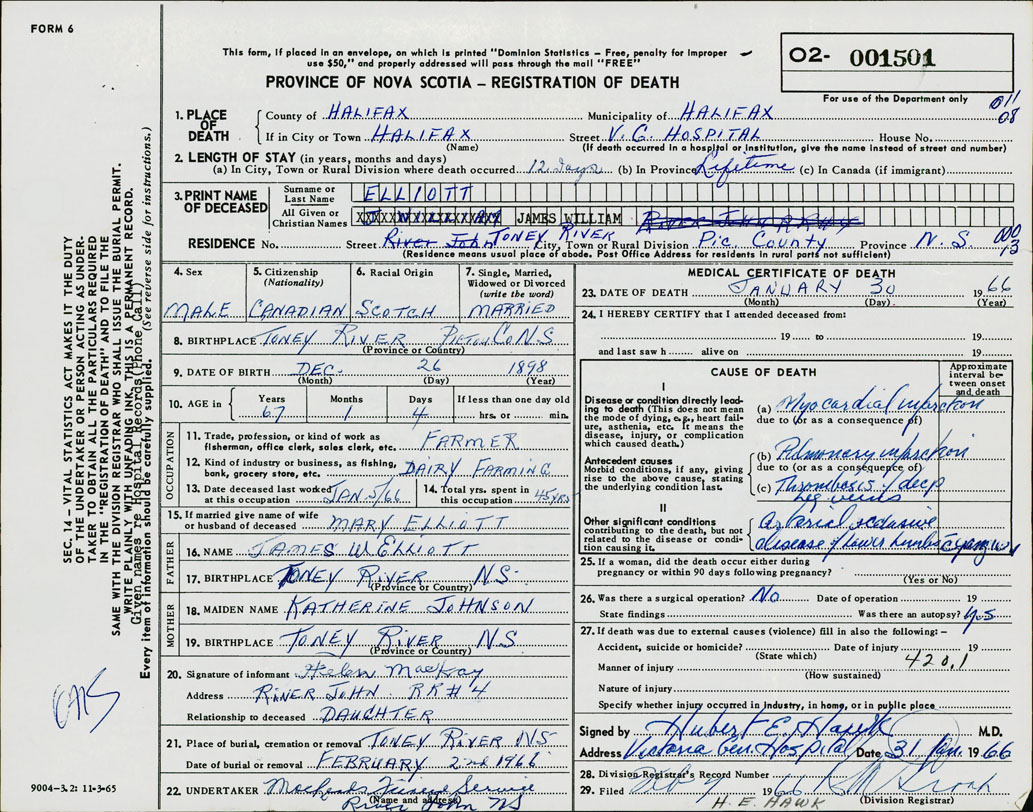 FORM 6
This form, if placed in an envelope, on which is printed "Dominion Statistics – Free, penalty for improper
use $50," and properly addressed will pass through the mail "FREE"
PROVINCE OF NOVA SCOTIA – REGISTRATION OF DEATH
02- 001501
For use of the Department only
011
08
1. PLACE OF DEATH
County of HALIFAX Municipality of HALIFAX
If in City or Town HALIFAX Street V. G. HOSPITAL House No.
(Name) (If death occurred in a hospital or institution, give the name instead of street and number)
2. LENGTH OF STAY (in years, months and days)
(a) In City, Town or Rural Division where death occurred 12 days (b) In Province Lifetime (c) In Canada (if immigrant)
3. PRINT NAME OF DECEASED
Surname or Last Name ELLIOTT
All Given or Christian Names JAMES WILLIAM
RESIDENCE No. Street River John TONEY RIVER City, Town or Rural Division Pic. County Province N. S.
000
13
(Residence means usual place of abode. Post Office Address for residents in rural parts not sufficient)
4. Sex MALE
5. Citizenship (Nationality) CANADIAN
6. Racial Origin SCOTCH
7. Single, Married, Widowed or Divorced (write the word) MARRIED
8. BIRTHPLACE TONEY RIVER PICTOU CO N.S.
(Province or Country)
9. DATE OF BIRTH DEC. 26 1898
(Month) (Day) (Year)
10. AGE in Years 67 Months 1 Days 4 If less than one day old hrs. or min.
OCCUPATION
11. Trade, profession, or kind of work as
fisherman, office clerk, sales clerk, etc. FARMER
12. Kind of industry or business, as fishing,
bank, grocery store, etc. DAIRY FARMING
13. Date deceased last worked at this occupation JAN 5/66
14. Total yrs. spent in this occupation 45 YRS
15. If married give name of wife
or husband of deceased MARY ELLIOTT
FATHER
16. NAME JAMES W. ELLIOTT
17. BIRTHPLACE TONEY RIVER N.S.
(Province or Country)
MOTHER
18. MAIDEN NAME KATHERINE JOHNSON
19. BIRTHPLACE TONEY RIVER NS
(Province or Country)
20. Signature of informant Helen MacKay
Address RIVER JOHN RR # 4
Relationship to deceased DAUGHTER
21. Place of burial, cremation or removal TONEY RIVER NS
Date of burial or removal FEBRUARY 2nd 1966
22. UNDERTAKER Service
(Name and address) River John NS
MEDICAL CERTIFICATE OF DEATH
23. DATE OF DEATH JANUARY 30 1966
(Month) (Day) (Year)
24. I HEREBY CERTIFY that I attended deceased from:
19 to 19
and last saw h alive on 19
CAUSE OF DEATH
Approximate interval between onset and death
I
Disease or condition directly leading to death (This does not
mean the mode of dying, e.g., heart failure, asthenia, etc. It means the
disease, injury, or complication
which caused death.)
(a) Myocardial infarction
due to (or as a consequence of)
Antecedent causes
Morbid conditions, if any, giving
rise to the above cause, stating
the underlying condition last.
(b) Pulmonary infarction
due to (or as a consequence of)
(c) Thrombosis of deep
leg veins
II
Other significant conditions
contributing to the death, but not
related to the disease or condition causing it.
Arterial occlusive
disease of lower limbs
25. If a woman, did the death occur either during
pregnancy or within 90 days following pregnancy?
(Yes or No)
26. Was there a surgical operation? No Date of operation 19
State findings Was there an autopsy? yes
27. If death was due to external causes (violence) fill in also the following:–
Accident, suicide or homicide? Date of injury 19
(State which) 420.1
Manner of injury
(How sustained)
Nature of injury
Specify whether injury occurred in industry, in home, or in public place
Signed by M.D.
Address Victoria Gen. Hospital Date 31 Jan. 1966
28. Division Registrar's Record Number
29. Filed Feb 1966
(Division Registrar)
H. E. HAWK
SEC. 14 – VITAL STATISTICS ACT MAKES IT THE DUTY
OF THE UNDERTAKER OR PERSON ACTING AS UNDERTAKER TO OBTAIN ALL THE PARTICULARS REQUIRED
IN THE "REGISTRATION OF DEATH" AND TO FILE THE
SAME WITH THE DIVISION REGISTRAR WHO SHALL ISSUE THE BURIAL PERMIT.
WRITE PLAINLY WITH UNFADING INK. THIS IS A PERMANENT RECORD.
Given names re Hospital Records (Phone Call)
Every item of information should be carefully supplied. (See reverse side for instructions.)
9004–3.2: 11-3-65